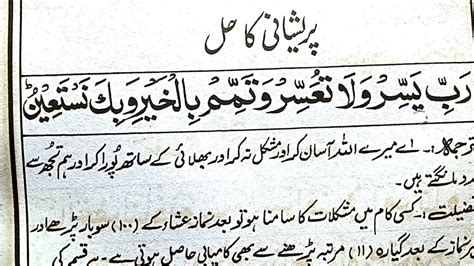 پریشانی کا حل
رَبِّ يَسِّرْ وَلَا تُعَسِّرْ وَتَمِّمْ بِالْخَيْرِ وَبِكَ نَسْتَعِيْنُ ط
ترجمہ:۔ اے میرے اللہ آسان کر اور مشکل نہ کر اور بھلائی کے ساتھ پورا کر اور ہم تجھ سے
مدد مانگتے ہیں۔
فضیلت:۔ کسی کام میں مشکلات کا سامنا ہو تو بعد نماز عشاء کے (۱۰۰) سو بار پڑھے اور
ہر نماز کے بعد گیارہ (۱۱) مرتبہ پڑھنے سے بھی کامیابی حاصل ہوتی ہے۔ ہر قسم کی